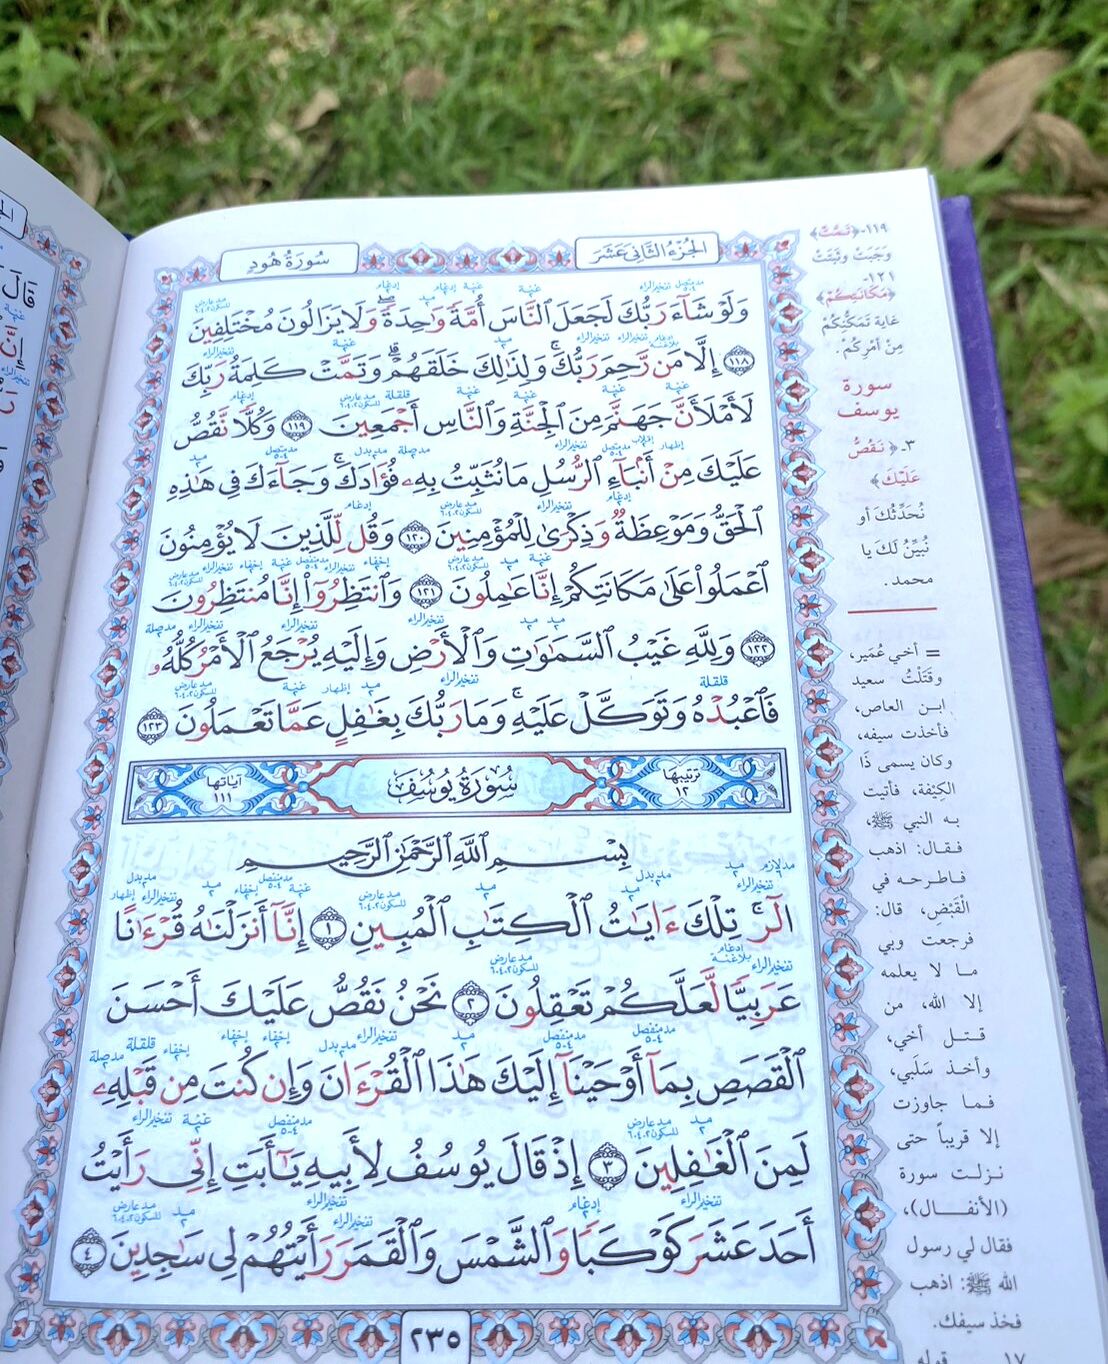 سُورَةُ هُودٍ
الجُزْءُ الثَّانِي عَشَرَ
وَلَوْ شَآءَ رَبُّكَ لَجَعَلَ ٱلنَّاسَ أُمَّةً وَٰحِدَةً ۖ وَلَا يَزَالُونَ مُخْتَلِفِينَ
١١٨ إِلَّا مَن رَّحِمَ رَبُّكَ ۚ وَلِذَٰلِكَ خَلَقَهُمْ ۗ وَتَمَّتْ كَلِمَةُ رَبِّكَ
لَأَمْلَأَنَّ جَهَنَّمَ مِنَ ٱلْجِنَّةِ وَٱلنَّاسِ أَجْمَعِينَ ١١٩ وَكُلًّا نَّقُصُّ
عَلَيْكَ مِنْ أَنۢبَآءِ ٱلرُّسُلِ مَا نُثَبِّتُ بِهِۦ فُؤَادَكَ ۚ وَجَآءَكَ فِى هَٰذِهِ
ٱلْحَقُّ وَمَوْعِظَةٌ وَذِكْرَىٰ لِلْمُؤْمِنِينَ ١٢٠ وَقُل لِّلَّذِينَ لَا يُؤْمِنُونَ
ٱعْمَلُوا۟ عَلَىٰ مَكَانَتِكُمْ إِنَّا عَٰمِلُونَ ١٢١ وَٱنتَظِرُوٓا۟ إِنَّا مُنتَظِرُونَ
١٢٢ وَلِلَّهِ غَيْبُ ٱلسَّمَٰوَٰتِ وَٱلْأَرْضِ وَإِلَيْهِ يُرْجَعُ ٱلْأَمْرُ كُلُّهُۥ
فَٱعْبُدْهُ وَتَوَكَّلْ عَلَيْهِ ۚ وَمَا رَبُّكَ بِغَٰفِلٍ عَمَّا تَعْمَلُونَ ١٢٣
ترتيبها ١٢ سُورَةُ يُوسُفَ آياتها ١١١
بِسْمِ ٱللَّهِ ٱلرَّحْمَٰنِ ٱلرَّحِيمِ
الٓر ۚ تِلْكَ ءَايَٰتُ ٱلْكِتَٰبِ ٱلْمُبِينِ ١ إِنَّآ أَنزَلْنَٰهُ قُرْءَٰنًا
عَرَبِيًّا لَّعَلَّكُمْ تَعْقِلُونَ ٢ نَحْنُ نَقُصُّ عَلَيْكَ أَحْسَنَ
ٱلْقَصَصِ بِمَآ أَوْحَيْنَآ إِلَيْكَ هَٰذَا ٱلْقُرْءَانَ وَإِن كُنتَ مِن قَبْلِهِۦ
لَمِنَ ٱلْغَٰفِلِينَ ٣ إِذْ قَالَ يُوسُفُ لِأَبِيهِ يَٰٓأَبَتِ إِنِّى رَأَيْتُ
أَحَدَ عَشَرَ كَوْكَبًا وَٱلشَّمْسَ وَٱلْقَمَرَ رَأَيْتُهُمْ لِى سَٰجِدِينَ ٤
٢٣٥
١١٩-﴿تَمَّتْ﴾
وَجَبَتْ وَثَبَتَتْ
١٢١-
﴿مَكَانَتِكُمْ﴾
غاية تَمَكُّنِكُمْ
مِنْ أَمْرِكُمْ.
سورة
يوسف
٣-﴿نَقُصُّ
عَلَيْكَ﴾
نُحَدِّثُكَ أو
نُبَيِّنُ لَكَ يا
محمد.
= أخي عُمَير،
وقَتَلْتُ سعيد
ابن العاص،
فأخذت سيفه،
وكان يسمى ذَا
الكِيْفة، فأتيت
به النبي ﷺ،
فقال: اذهب
فاطرحه في
الْقَبَضِ، قال:
فرجعت وبي
ما لا يعلمه
إلا الله، من
قتل أخي،
وأخذ سَلَبي،
فما جاوزت
إلا قريباً حتى
نزلت سورة
(الأنفال)،
فقال لي رسول
الله ﷺ: اذهب
فخذ سيفك.
١٧ قوله